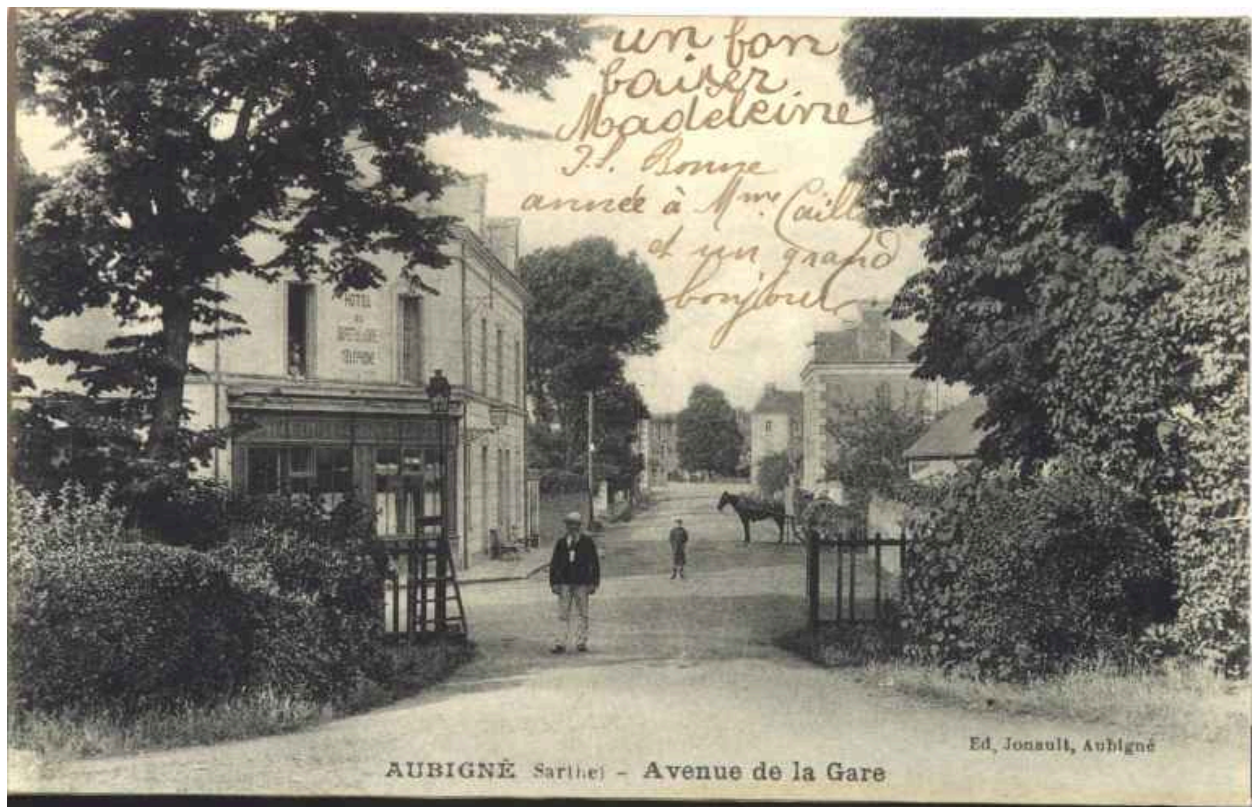 un bon
baiser
Madeleine
Bonne
année à Mme Caill
et un grand
bonjour
HOTEL
TÉLÉPHONE
Ed. Jonault, Aubigné
AUBIGNÉ (Sarthe) - Avenue de la Gare